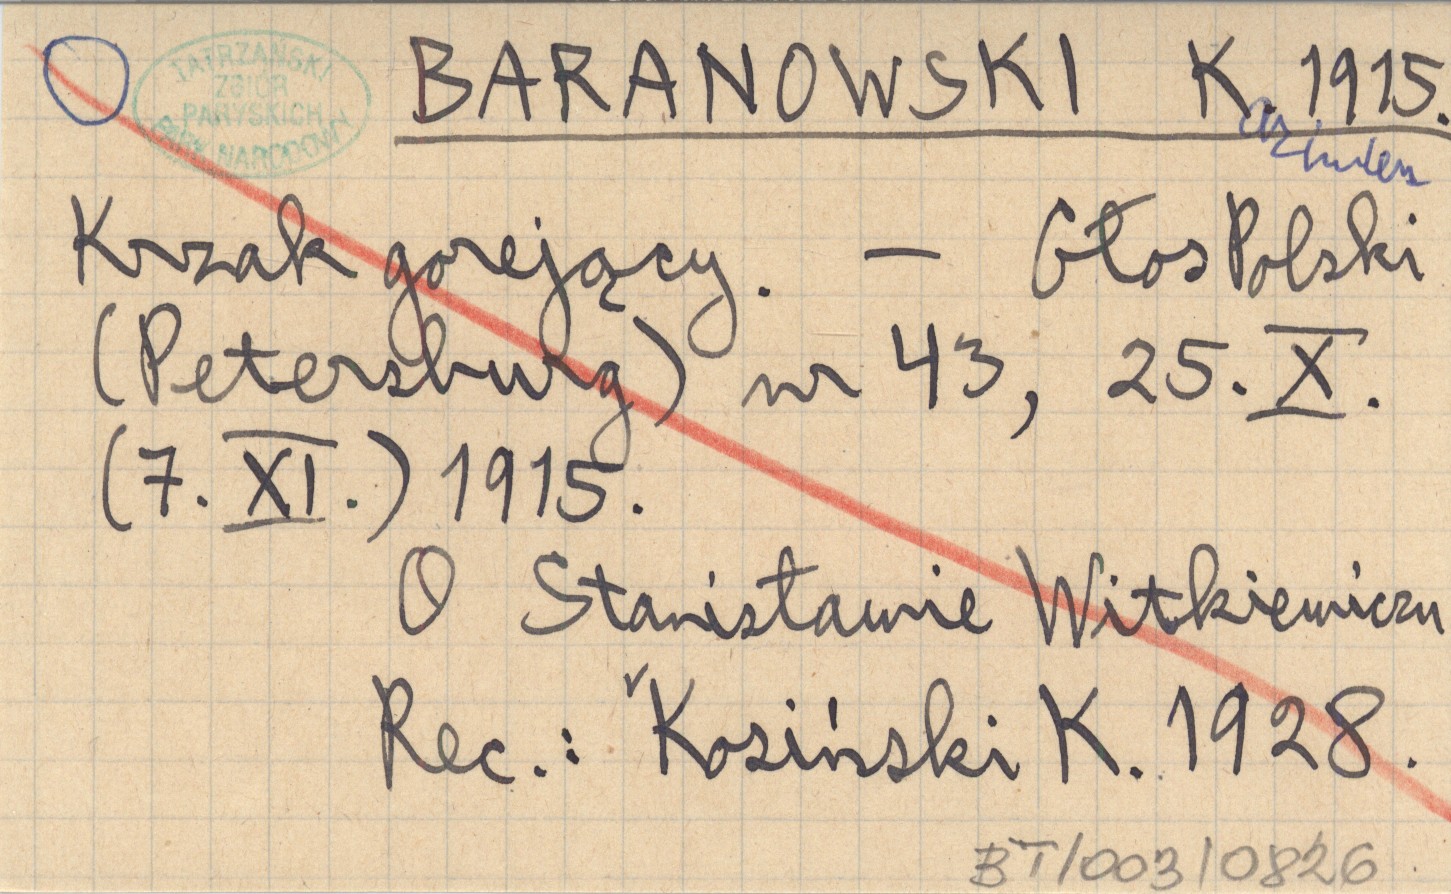 TATRZAŃSKI
ZBIÓR
PARYSKICH
PARK NARODOWY
BARANOWSKI K. 1915.
azimierz
Krzak gorejący. — Głos Polski
(Petersburg) nr 43, 25. X.
(7. XI.) 1915.
O Stanisławie Witkiewiczu
Rec.: Kosiński K. 1928.
BT/003/0826